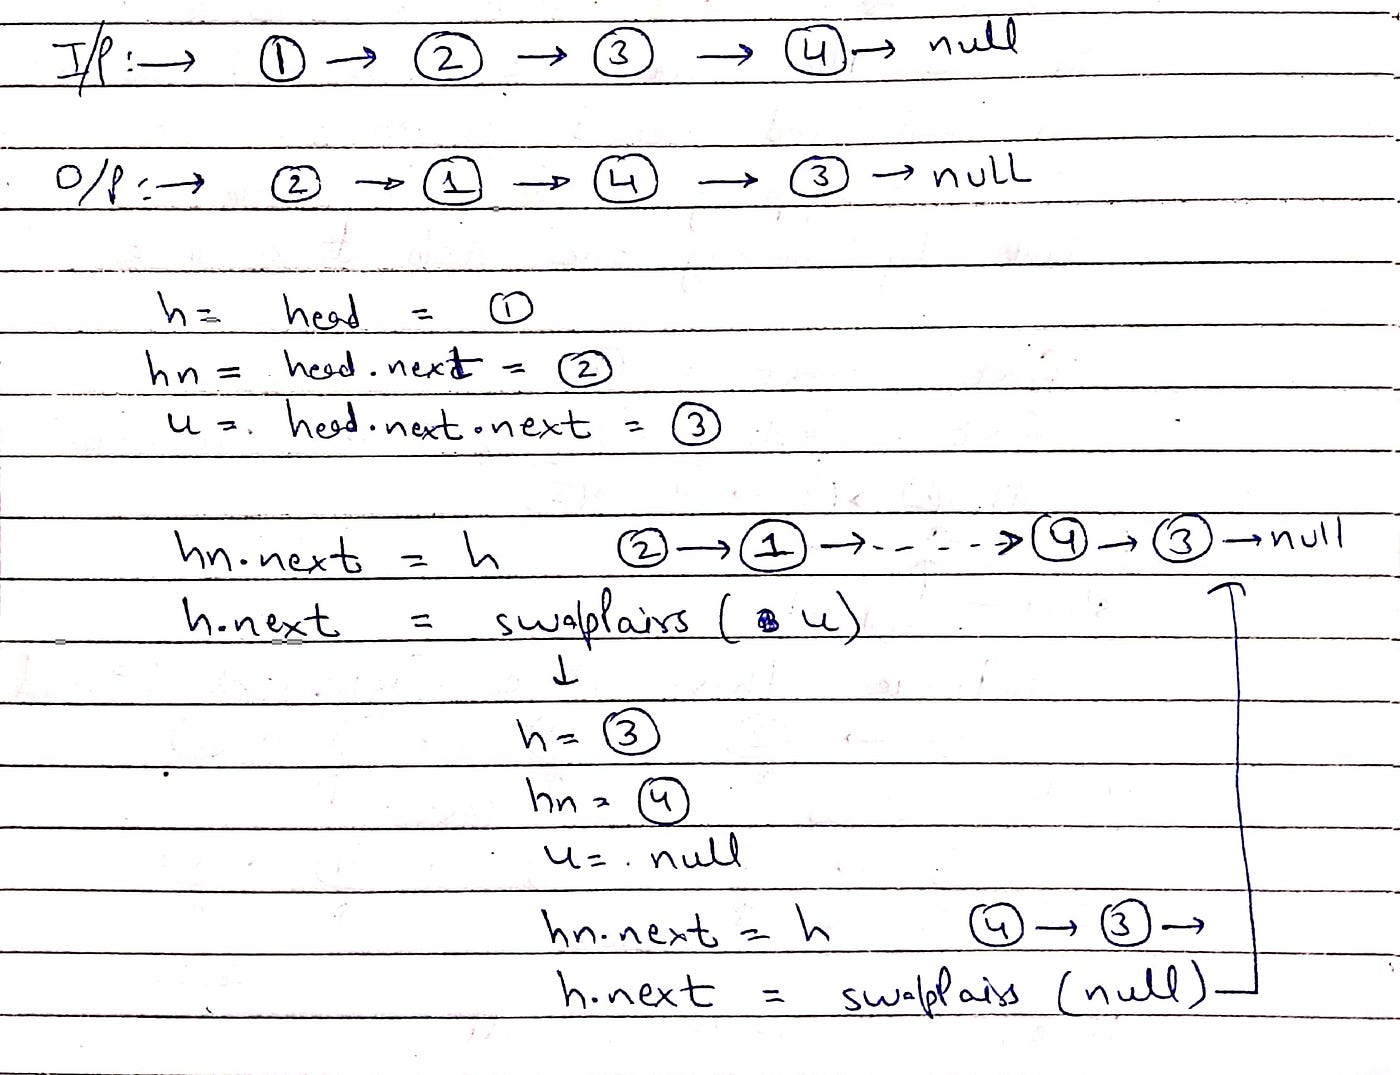 I/P :→ ① → ② → ③ → ④ → null
O/P :→ ② → ① → ④ → ③ → null
h = head = ①
hn = head.next = ②
u = head.next.next = ③
hn.next = h ② → ① → - - - → ④ → ③ → null
h.next = swappairs ( u)
↓
h = ③
hn = ④
u = null
hn.next = h ④ → ③ →
h.next = swappairs (null)